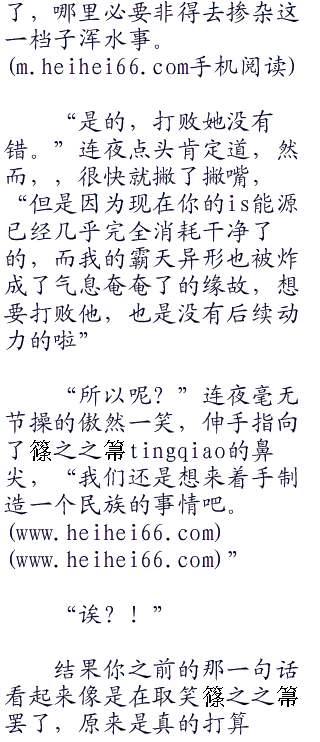 了，哪里必要非得去掺杂这
一档子浑水事。
(m.heihei66.com手机阅读)
“是的，打败她没有
错。”连夜点头肯定道，然
而，，很快就撇了撇嘴，
“但是因为现在你的is能源
已经几乎完全消耗干净了
的，而我的霸天异形也被炸
成了气息奄奄了的缘故，想
要打败他，也是没有后续动
力的啦”
“所以呢？”连夜毫无
节操的傲然一笑，伸手指向
了篠之之箒tingqiao的鼻
尖，“我们还是想来着手制
造一个民族的事情吧。
(www.heihei66.com)
(www.heihei66.com)”
“诶？！”
结果你之前的那一句话
看起来像是在取笑篠之之箒
罢了，原来是真的打算